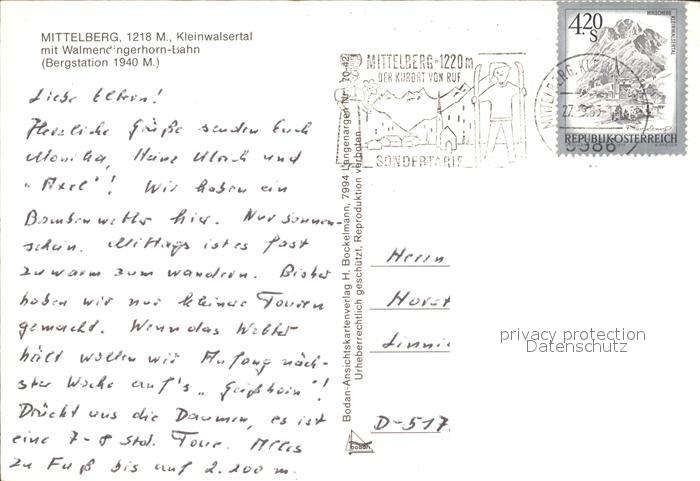 MITTELBERG, 1218 M., Kleinwalsertal
mit Walmendingerhorn-Bahn
(Bergstation 1940 M.)
Liebe Eltern!
Herzliche Grüße senden Euch
Monika, Heinz Ulrich und
"Axel"! Wir haben ein
Bombenwetter hier. Nur Sonnen-
schein. Mittags ist es fast
zu warm zum wandern. Bisher
haben wir nur kleinere Touren
gemacht. Wenn das Wetter
hält wollen wir Anfang näch-
ster Woche auf's "Geißhorn"!
Drückt uns die Daumen, es ist
eine 7-8 Std. Tour. Alles
zu Fuß bis auf 2.200 m.
Bodan-Ansichtskartenverlag H. Bockelmann, 7994 Langenargen Nr. 70-42
Urheberrechtlich geschützt, Reproduktion verboten
bodan
MITTELBERG-1220m
DER KURORT VON RUF
SONDERTARIF
MITTELBERG, KL
27.
HIRSCHEGG
KLEINWALSERTAL
4.20
S
REPUBLIK ÖSTERREICH
Herrn
Horst
Linnic
D-517
privacy protection
Datenschutz